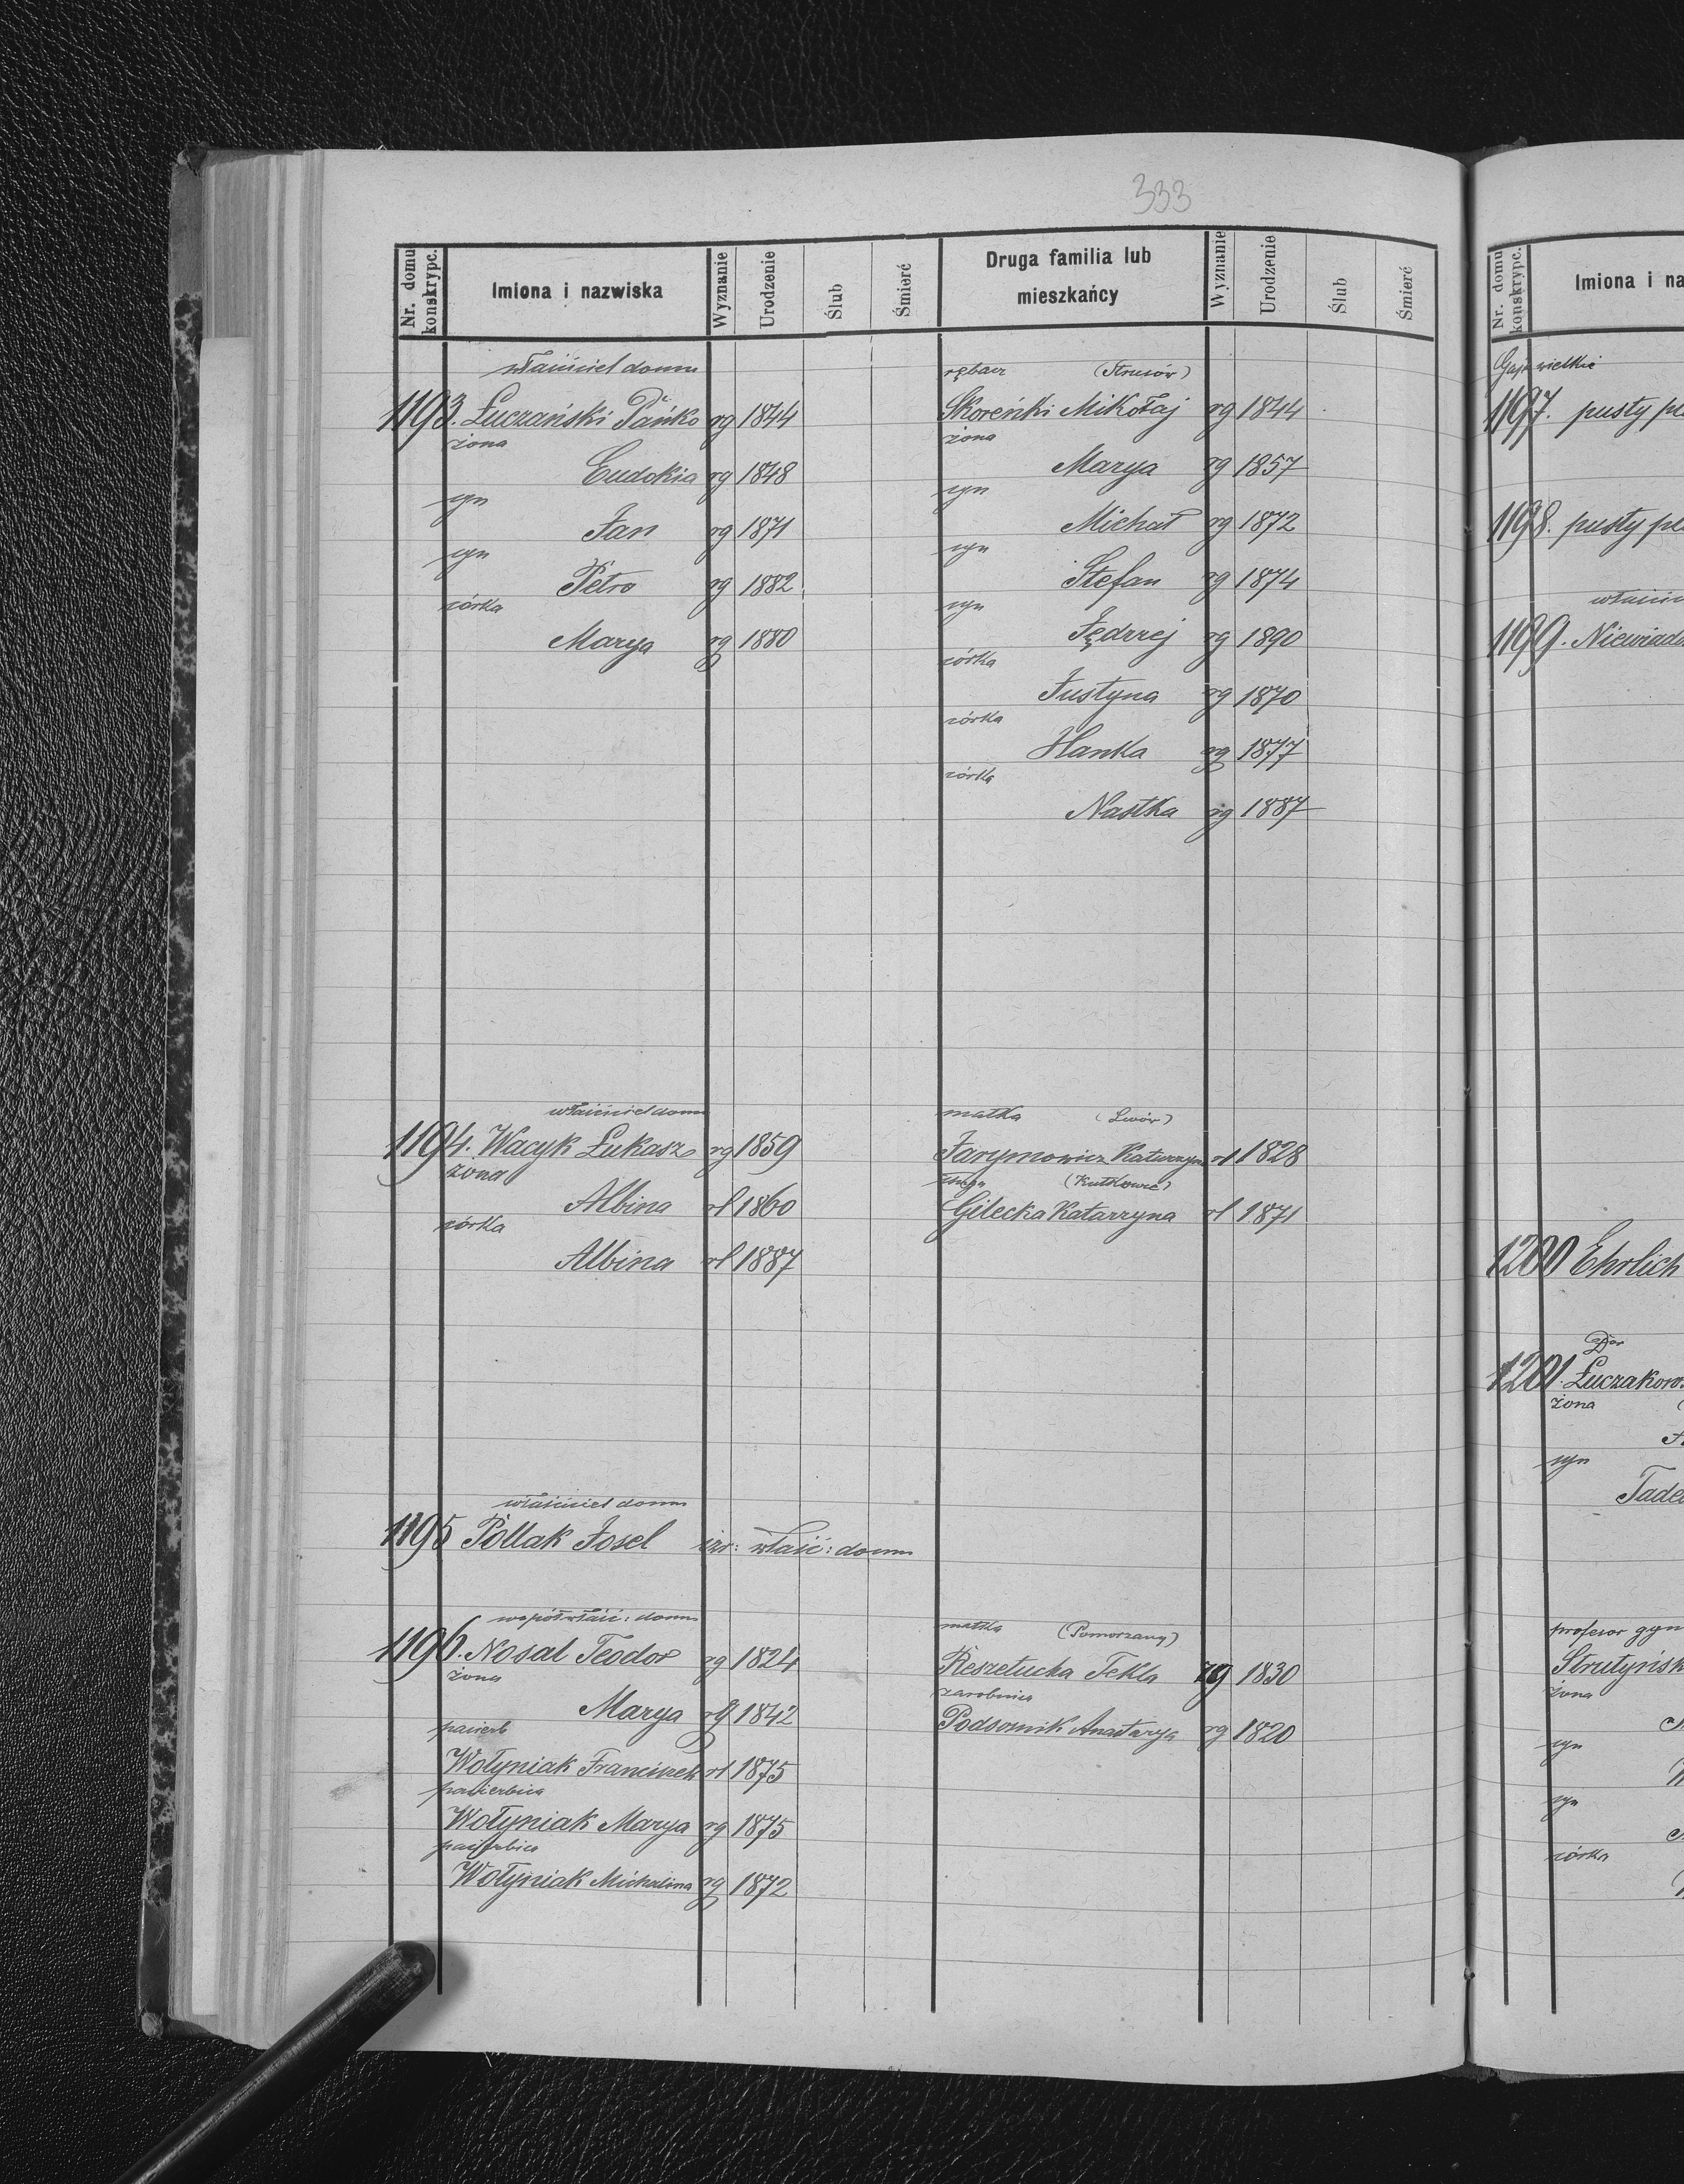 333
Nr. domu konskrypc.
Imiona i nazwiska
Wyznanie
Urodzenie
Ślub
Śmierć
Druga familia lub mieszkańcy
Wyznanie
Urodzenie
Ślub
Śmierć
właściciel domu
1193. Łuczański Pańko rg 1844
żona
Eudokia rg 1848
syn
Jan rg 1871
syn
Petro rg 1882
córka
Marya rg 1880
rębacz (Strusów)
Skoreńki Mikołaj rg 1844
żona
Marya rg 1857
syn
Michał rg 1872
syn
Stefan rg 1874
syn
Jędrzej rg 1890
córka
Justyna rg 1870
córka
Hanka rg 1877
córka
Nastka rg 1887
właściciel domu
1194. Wacyk Łukasz rg 1859
żona
Albina rl 1860
córka
Albina rl 1887
matka (Lwów)
Jarymowicz Katarzyna rl 1828
(Kutkowce)
Gilecka Katarzyna rl 1871
właściciel domu
1195 Pollak Josel izr: właść: domu
współwłaść: domu
1196. Nosal Teodor rg 1824
żona
Marya rg 1842
pasierb
Wołyniak Franciszek rl 1875
pasierbica
Wołyniak Marya rg 1875
pasierbica
Wołyniak Michalina rg 1872
matka (Pomorzany)
Reszetucha Tekla rg 1830
zarobnica
Podsomik Anastazya rg 1820
Nr. domu konskrypc.
Imiona i na
Gaje wielkie
1197. pusty pl
1198. pusty pl
właścic
1199. Niewiado
1200 Ehrlich
Dor
1201. Łuczakow
żona
syn
Tade
profesor gyn
Strutyńsk
żona
syn
syn
córka